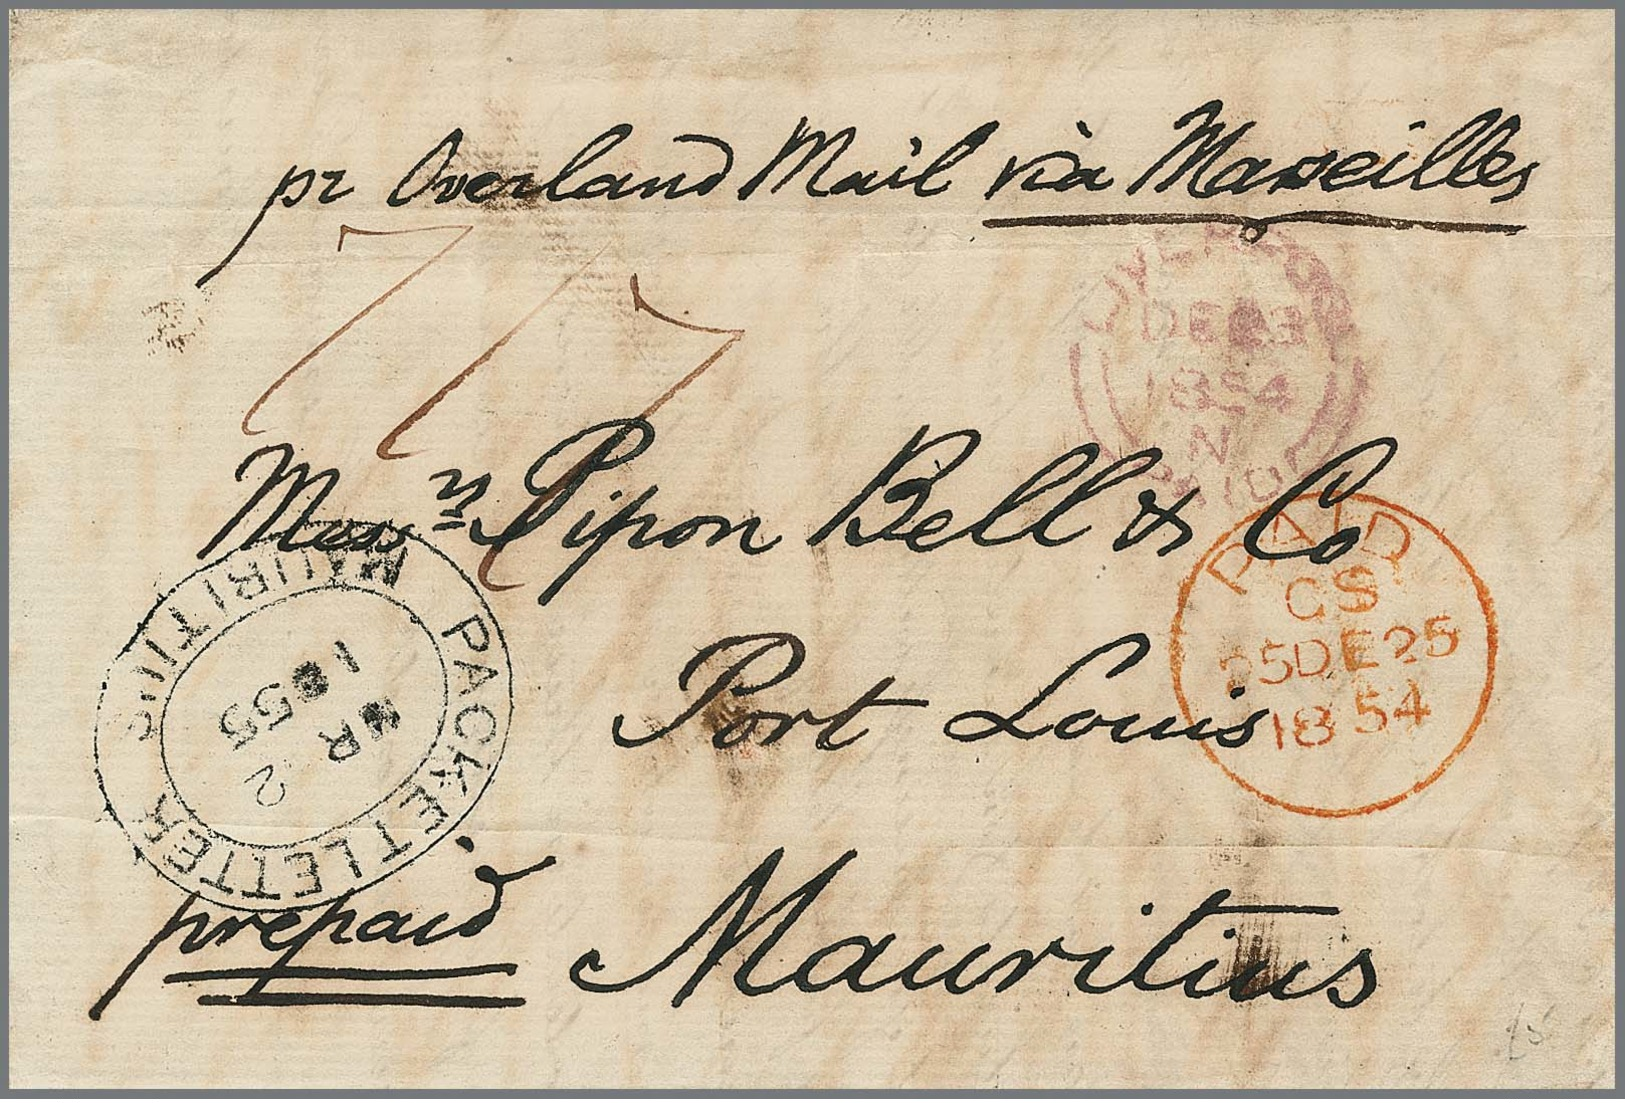 pr Overland Mail via Marseilles
LIVERPOOL
DE 23
1854
N
PAID
Messrs Pipon Bell & Co
PAID
CS
25DE25
1854
Port Louis
MAURITIUS
PACKET LETTER
MR 2
1855
prepaid
Mauritius